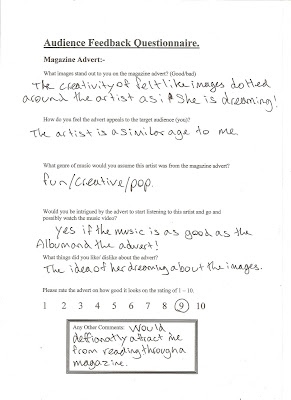 Audience Feedback Questionnaire.
Magazine Advert:-
What images stand out to you on the magazine advert? (Good/bad)
The creativity of felt like images dotted
around the artist as if she is dreaming!
How do you feel the advert appeals to the target audience (you)?
The artist is a similar age to me.
What genre of music would you assume this artist was from the magazine advert?
fun/creative/pop.
Would you be intrigued by the advert to start listening to this artist and go and
possibly watch the music video?
Yes if the music is as good as the
Album and the advert!
What things did you like/ dislike about the advert?
The idea of her dreaming about the images.
Please rate the advert on how good it looks on the rating of 1 – 10.
1 2 3 4 5 6 7 8 9 10
Any Other Comments: Would
deffionatly attract me
from reading through a
magazine.